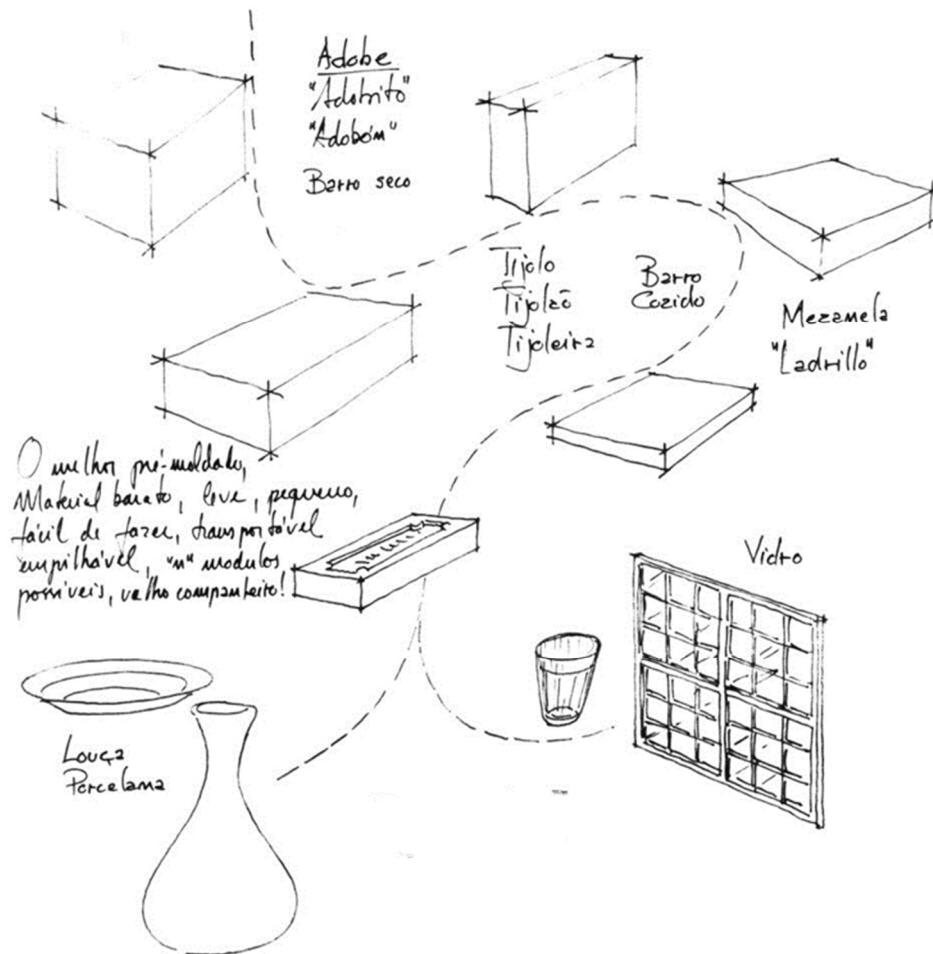 Adobe
"Adobito"
"Adobóm"
Barro seco
Tijolo
Tijolão
Tijoleira
Barro
Cozido
Mezanela
"Ladrillo"
O melhor pré-moldado,
Material barato, leve, pequeno,
fácil de fazer, transportável
empilhável, "n" modulos
possíveis, velho companheiro!
Vidro
Louça
Porcelana